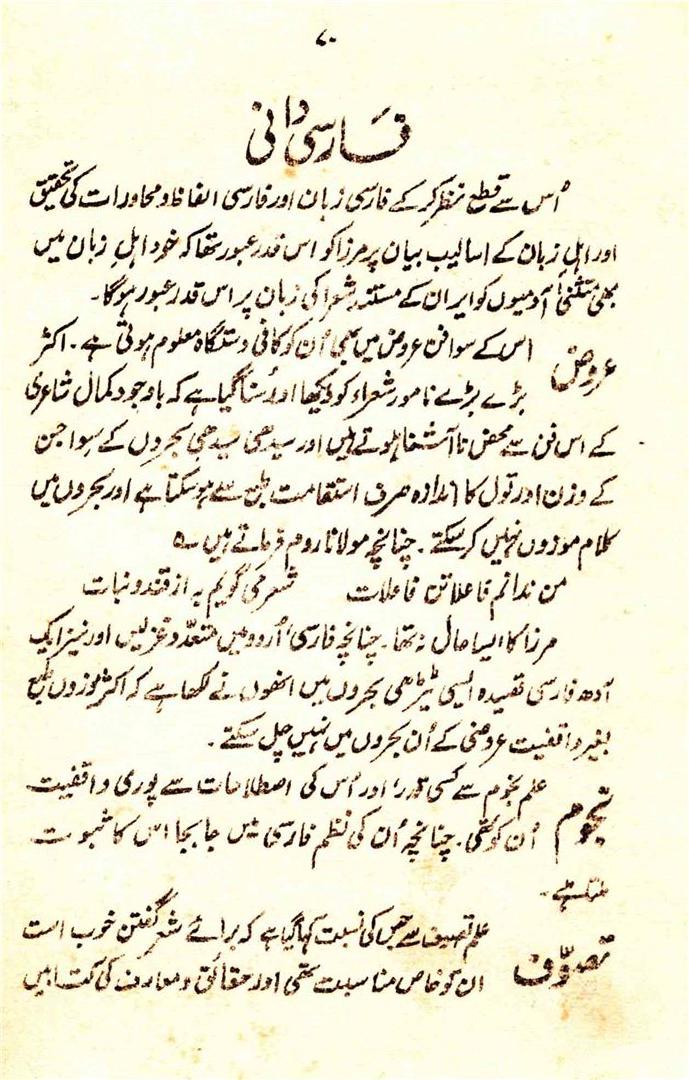 ۷۰
فارسی دانی
اُس سے قطع نظر کر کے فارسی زبان اور فارسی الفاظ و محاورات کی تحقیق
اور اہلِ زبان کے اسالیب بیان پر مرزا کو اس قدر عبور تھا کہ خود اہلِ زبان میں
بھی مستثنیٰ آدمیوں کو ایران کے مستند شعرا کی زبان پر اس قدر عبور ہوگا۔
عروض اس کے سوا فن عروض میں بھی اُن کو کافی دستگاہ معلوم ہوتی ہے۔ اکثر
بڑے بڑے نامور شعراء کو دیکھا اور سُنا گیا ہے کہ باوجود کمال شاعری
کے اس فن سے محض نا آشنا ہوتے ہیں اور سیدھی سیدھی بحروں کے سوا جن
کے وزن اور تول کا اندازہ صرف استقامت طبع سے ہو سکتا ہے اور بحروں میں
کلام موزوں نہیں کر سکتے۔ چنانچہ مولانا روم فرماتے ہیں ؎
من ندانم فاعلاتن فاعلات شعر می گویم بہ از قند و نبات
مرزا کا ایسا حال نہ تھا۔ چنانچہ فارسی، اُردو میں متعدّد غزلیں اور نیز ایک
آدھ فارسی قصیدہ ایسی ٹیڑھی بحروں میں انھوں نے لکھا ہے کہ اکثر موزوں طبع
بغیر واقفیت عروض کے اُن بحروں میں نہیں چل سکتے۔
نجوم علم نجوم سے کسی قدر، اور اُس کی اصطلاحات سے پوری واقفیت
اُن کو تھی۔ چنانچہ اُن کی نظم فارسی میں جا بجا اس کا ثبوت
ملتا ہے۔
تصوّف علم تصوف سے جس کی نسبت کہا گیا ہے کہ برائے شعر گفتن خوب است
ان کو خاص مناسبت تھی اور حقائق و معارف کی کتابیں